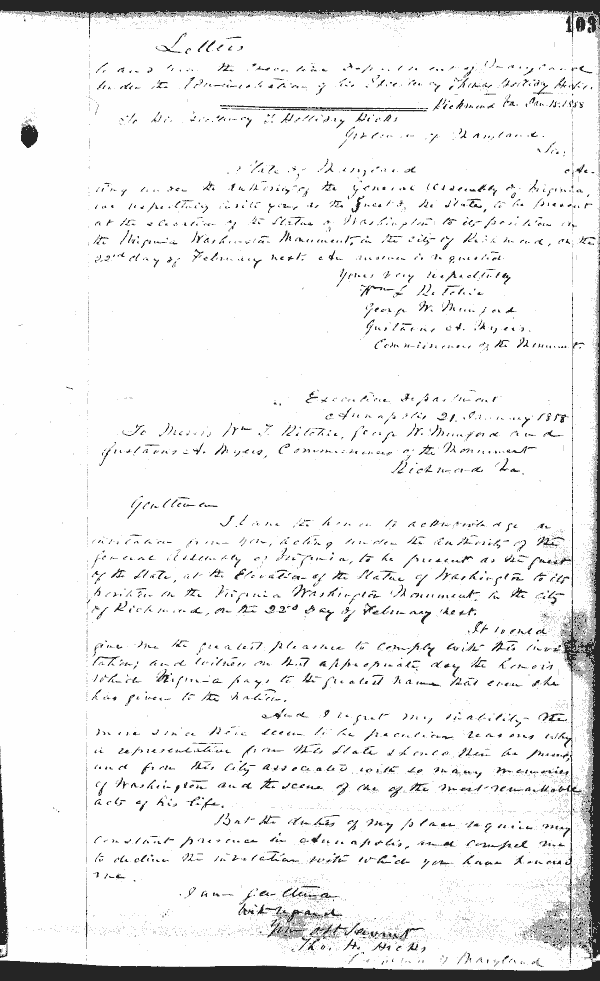 103
Letters
to and from the Executive Department of Maryland
under the Administration of his Excellency Thomas Holliday Hicks.
Richmond Va. Jan. 15. 1858
To His Excellency T. Holliday Hicks
Governor of Maryland.
Sir,
State of Maryland Ac-
ting under the Authority of the General Assembly of Virginia,
we respectfully invite you, as the guest of the State, to be present
at the elevation of the Statue of Washington to its position on
the Virginia Washington Monument, in the city of Richmond, on the
22nd day of February next. An answer is requested
Yours very respectfully
Wm Ritchie
George W. Munford
Gustavus A. Myers.
Commissioners of the Monument.
Executive Department
Annapolis 21. January 1858
To Messrs Wm F. Ritchie, George W. Munford and
Gustavus A. Myers, Commissioners of the Monument
Richmond Va.
Gentlemen
I have the honor to acknowledge an
invitation from you, acting under the authority of the
General Assembly of Virginia, to be present as the guest
of the State, at the Elevation of the Statue of Washington to its
position on the Virginia Washington Monument, in the city
of Richmond, on the 22d Day of February next.
It would
give me the greatest pleasure to comply with this invi-
tation; and witness on that appropriate day the honors
which Virginia pays to the greatest name that even she
has given to the nation.
And I regret my inability the
more since there seem to be peculiar reasons why
a representative from this State should then be present,
and from this City associated with so many memories
of Washington and the scene of one of the most remarkable
acts of his life.
But the duties of my place require my
constant presence in Annapolis, and compel me
to decline the invitation with which you have honored
me.
I am Gentlemen
With regard
Your obt Servant
Tho. H. Hicks
Governor of Maryland